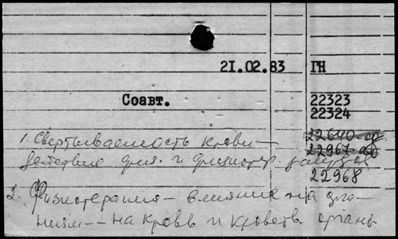 21.02.83 ГН
Соавт.
22323
22324
22640-
22967-
22968
1. Свертываемость крови —
действие физ. и физиотер.
2. Физиотерапия — влияние на орга-
низм — на кровь и кроветв. органы